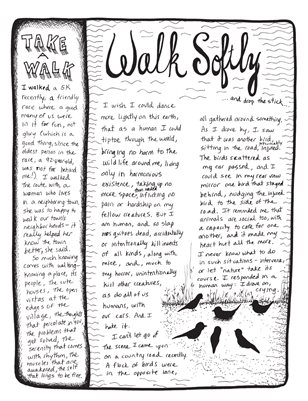 TAKE
WALK
I walked a 5K
recently, a friendly
race where a good
many of us were
in it for fun, not
glory (which is a
good thing, since the
oldest person in the
race, a 92-year-old,
was not far behind
me!) I walked
the route with a
woman who lives
in a neighboring town;
she was so happy to
walk our town's
neighborhoods – it
really helped her
know the town
better, she said.
So much knowing
comes with walking –
knowing a place, its
people, the cute
houses, the open
vistas at the
edges of the
village, the thoughts
that percolate up,
the problems that
get solved, the
serenity that comes
with rhythm, the
muscles that are
awakened, the self
that longs to be free.
Walk Softly
and drop the stick.
I wish I could dance
more lightly on this earth,
that as a human I could
tiptoe through the world,
bringing no harm to the
wild life around me, living
only in harmonious
existence, taking up no
more space, inflicting no
pain or hardship on my
fellow creatures. But I
am human, and so step
into gutters dead, accidentally
or intentionally kill insects
of all kinds, along with
mice, and, much to
my horror, unintentionally
kill other creatures,
as do all of us
humans, with
our cars. And I
hate it.
I can't let go of
the scene I came upon
on a country road recently.
A flock of birds were
in the opposite lane,
all gathered around something.
As I drove by, I saw
that it was another bird,
sitting in the road, injured.
The birds scattered as
my car passed, and I
could see in my rear view
mirror one bird that stayed
behind, nudging the injured
bird to the side of the
road. It reminded me that
animals are social too, with
a capacity to care for one
another, and it made my
heart hurt all the more.
I never know what to do
in such situations – intervene
or let "nature" take its
course. I responded in a
human way: I drove on,
crying.